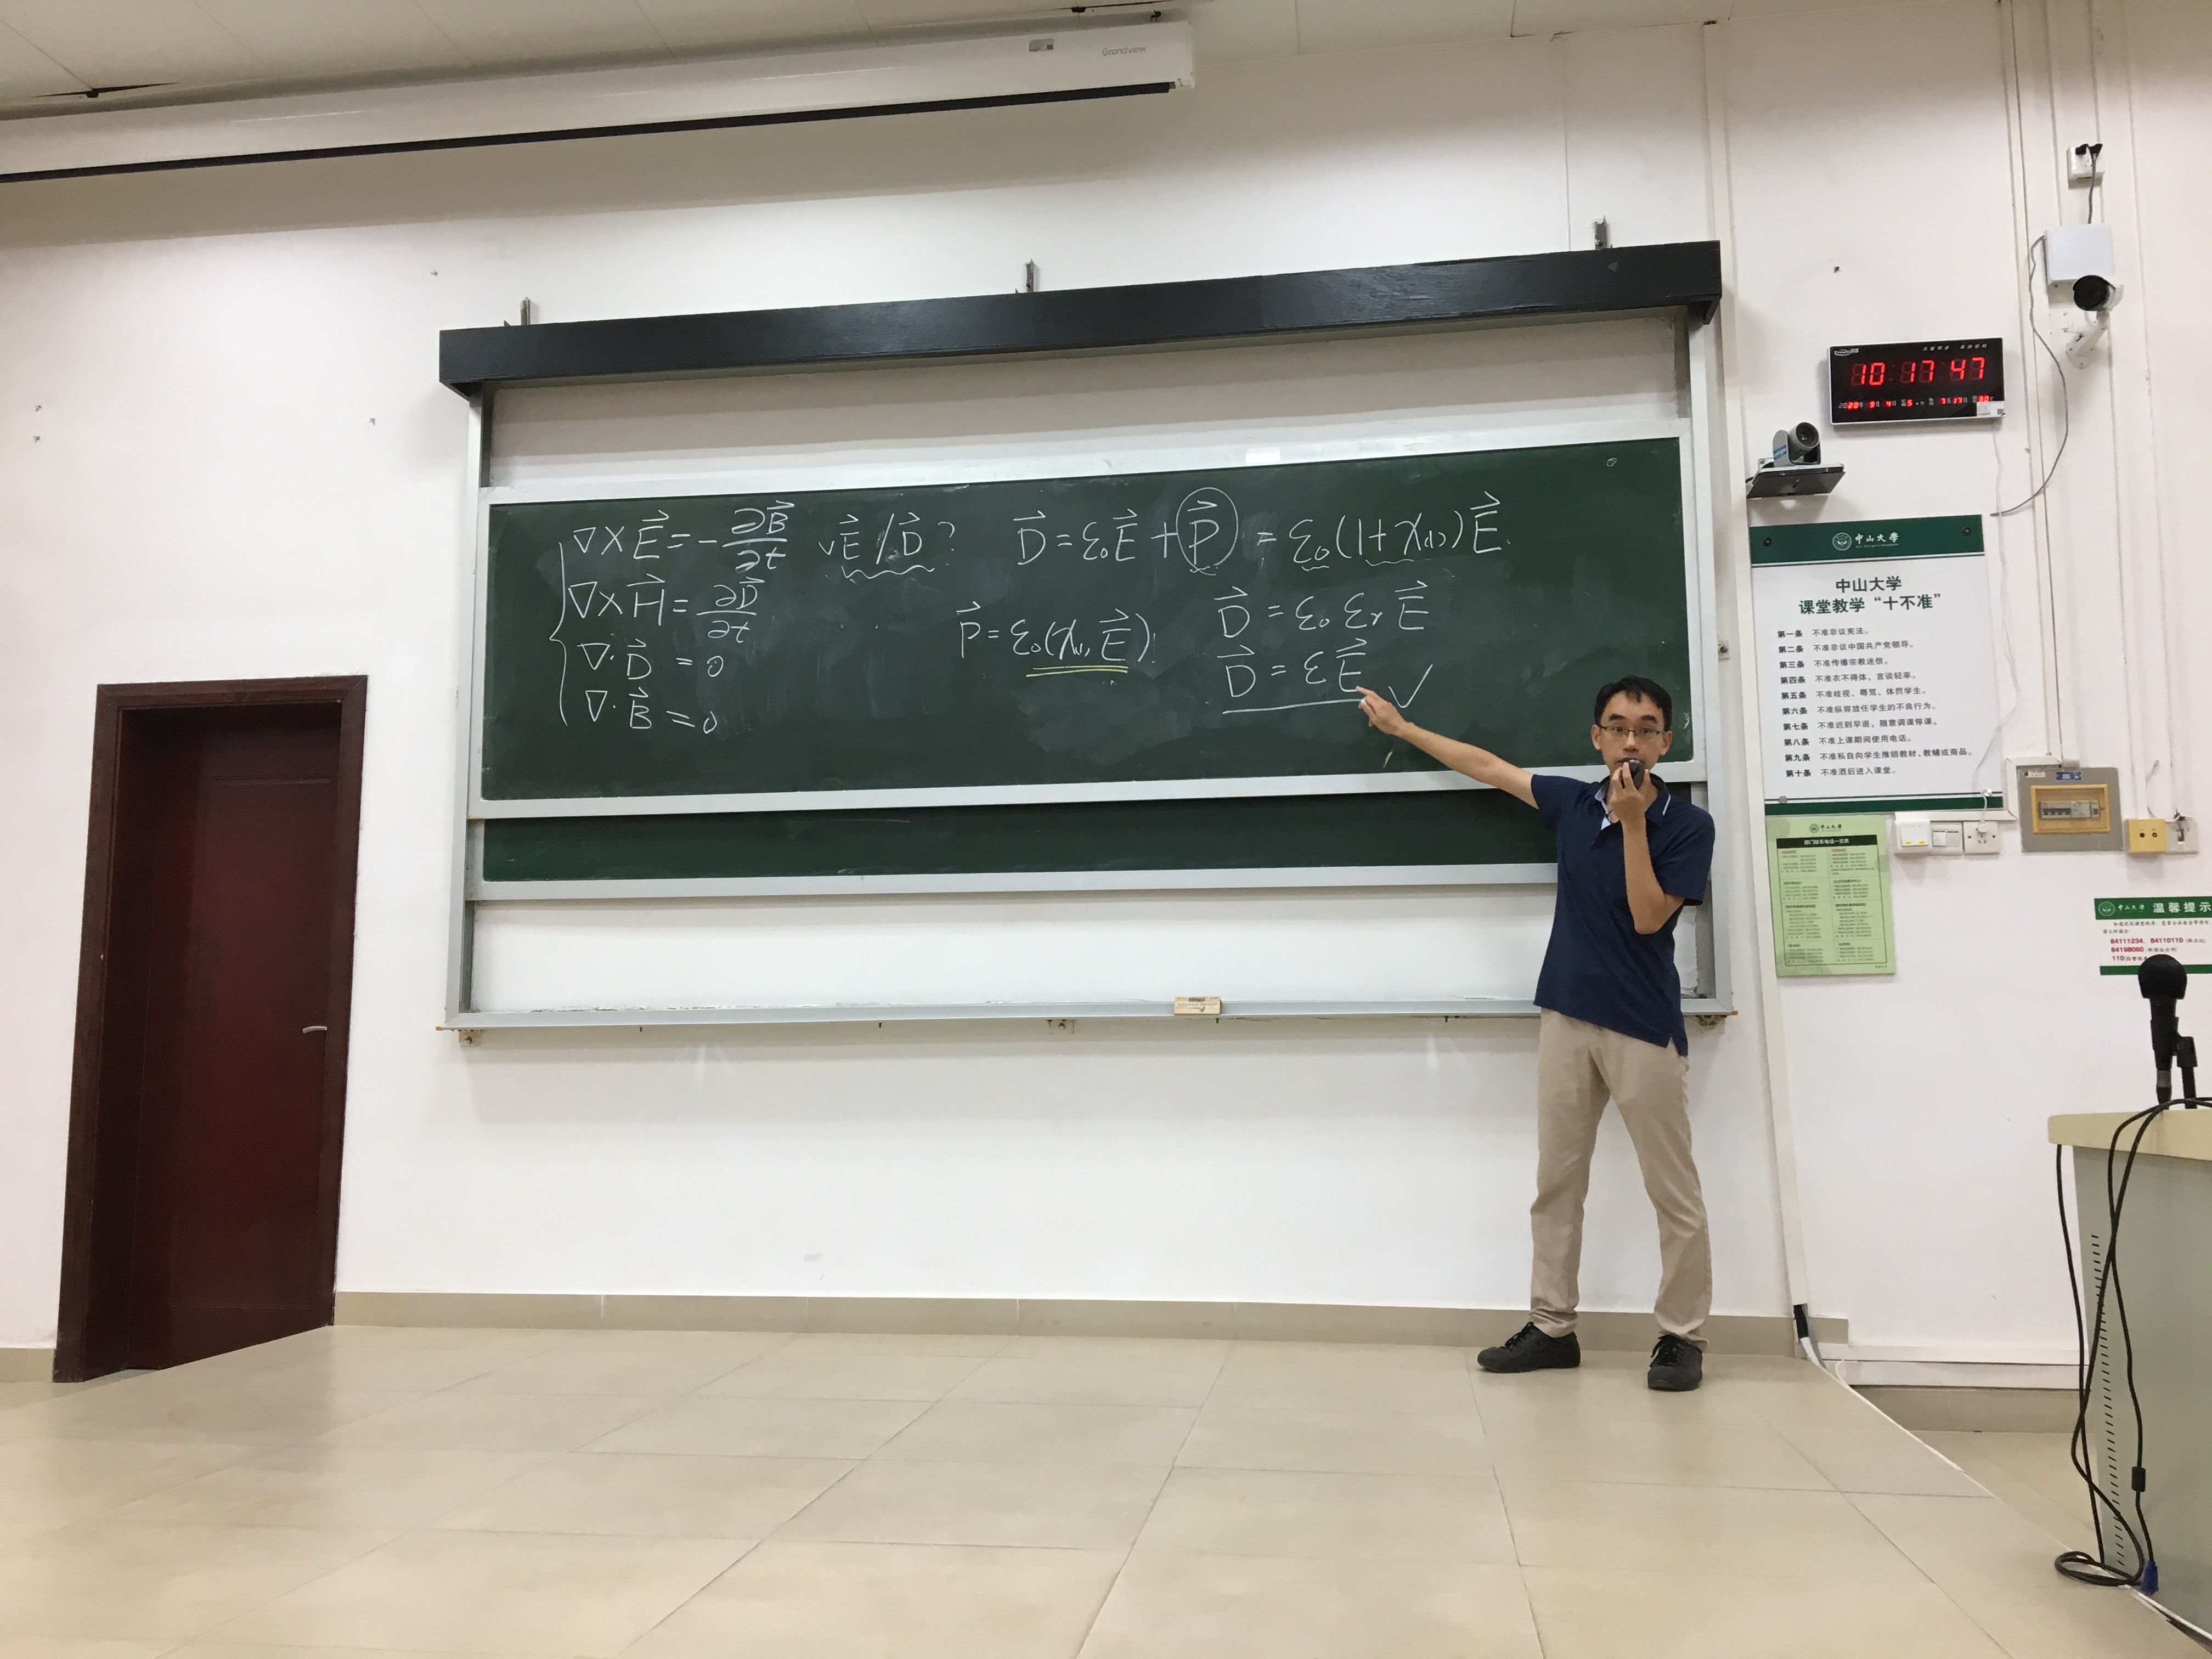 Grandview
∇×E⃗ = -∂B⃗/∂t
∇×H⃗ = ∂D⃗/∂t
∇·D⃗ = 0
∇·B⃗ = 0
√E⃗/D⃗?
D⃗ = ε₀E⃗ + P⃗ = ε₀(1+χ₍₁₎)E⃗.
P⃗ = ε₀(χ₍₁₎E⃗).
D⃗ = ε₀εᵣE⃗
D⃗ = εE⃗ ✓
10 17 47
2020年 9月 4日 星期5 农历 7月17日
中山大学
中山大学
课堂教学“十不准”
第一条 不准非议宪法。
第二条 不准非议中国共产党领导。
第三条 不准传播宗教迷信。
第四条 不准衣不得体，言谈轻率。
第五条 不准歧视、辱骂、体罚学生。
第六条 不准纵容放任学生的不良行为。
第七条 不准迟到早退，随意调课停课。
第八条 不准上课期间使用电话。
第九条 不准私自向学生推销教材、教辅或商品。
第十条 不准酒后进入课堂。
中山大学
部门联系电话一览表
中山大学 温馨提示
84111234、84110110
84198080
110